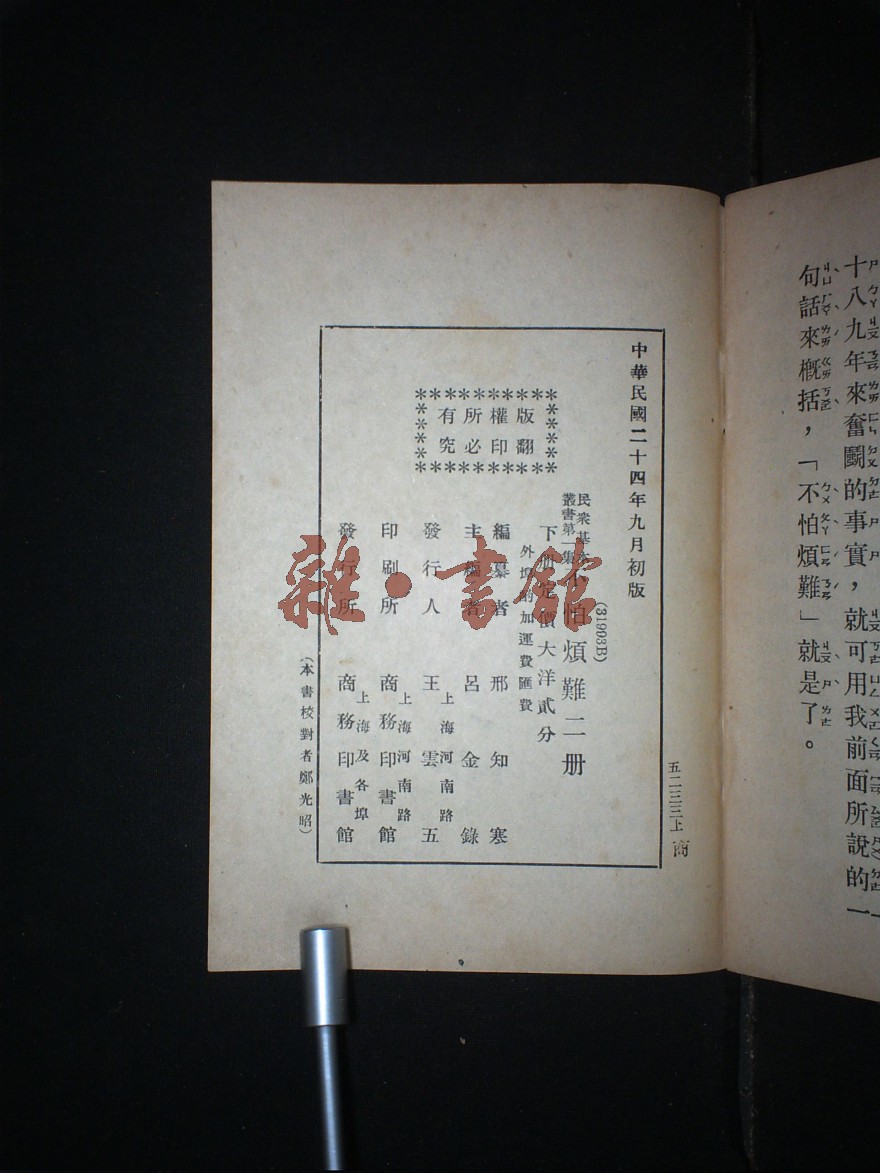 十八九年來奮鬭的事實，就可用我前面所說的一
句話來概括，「不怕煩難」就是了。
五二三三上 商
中華民國二十四年九月初版
(31993B)
民衆基本
叢書第一集
不怕煩難二册
下册定價大洋貳分
外埠酌加運費匯費
版權所有
翻印必究
編纂者 邢知寒
主編者 呂金錄
發行人 王雲五
上海河南路
印刷所 商務印書館
上海河南路
發行所 商務印書館
上海及各埠
(本書校對者鄭光昭)
雜·書館